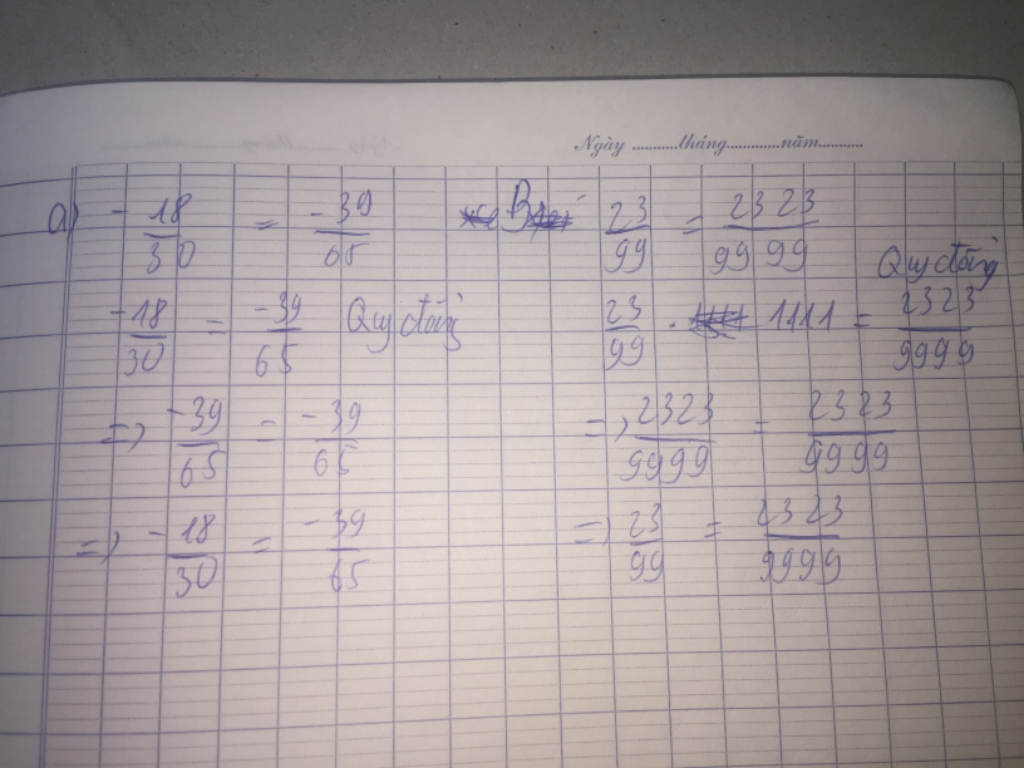 Ngày ..........tháng............năm..........
a) -18/30 = -39/65
-18/30 = -39/65 Quy đồng
=> -39/65 = -39/65
=> -18/30 = -39/65
B 23/99 = 2323/9999
Quy đồng
23/99 . 1111 = 2323/9999
=> 2323/9999 = 2323/9999
=> 23/99 = 2323/9999